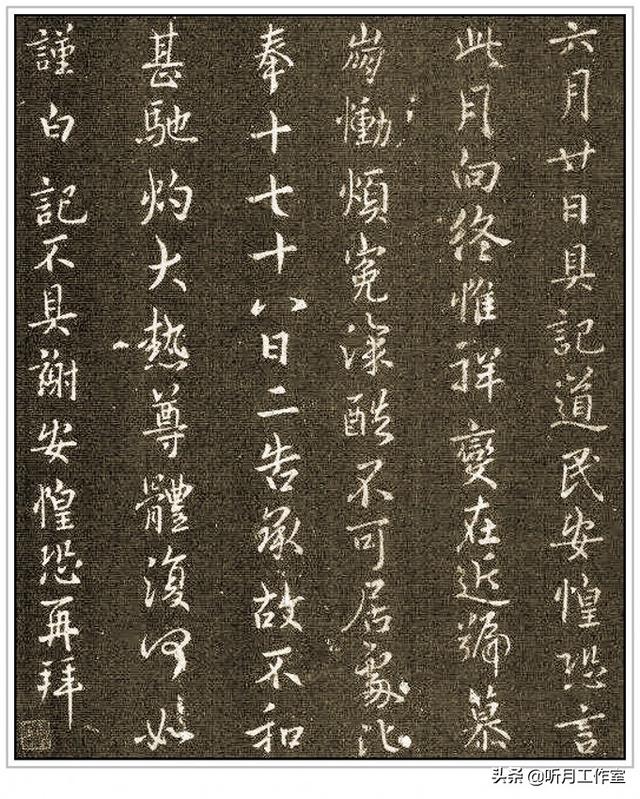 六月廿日具記道民安惶恐言
此月向終惟祥變在近號慕
崩慟煩冤深酷不可居處比
奉十七十八日二告承故不和
甚馳灼大熱尊體復何如
謹白記不具謝安惶恐再拜
头条 @听月工作室